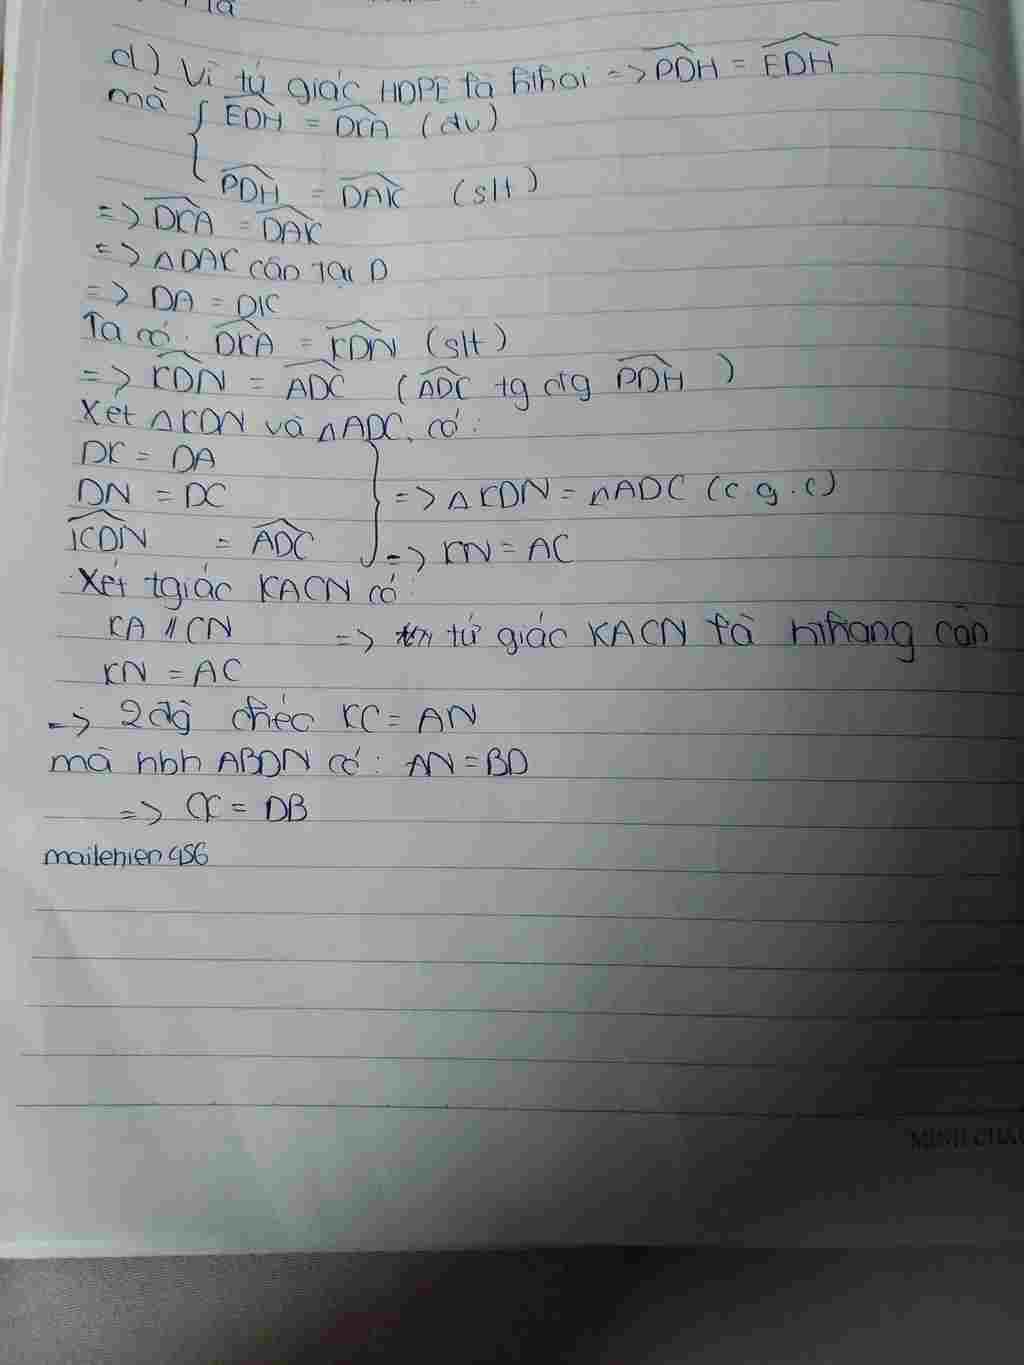 là
d) Vì tứ giác HDPE là hthoi => PDH = EDH
mà { EDH = DKA (đv)
PDH = DAK (slt)
=> DKA = DAK
=> △DAK cân tại D
=> DA = DK
Ta có: DKA = KDN (slt)
=> KDN = ADC (ADC tg ưg PDH)
Xét △KDN và △ADC, có:
DK = DA
DN = DC => △KDN = △ADC (c.g.c)
KDN = ADC => KN = AC
Xét tgiác KACN có:
KA // CN => tứ giác KACN là hthang cân
KN = AC
=> 2 đg chéc KC = AN
mà hbh ABDN có: AN = BD
=> CK = DB
mailehien456
MINH CHÂU